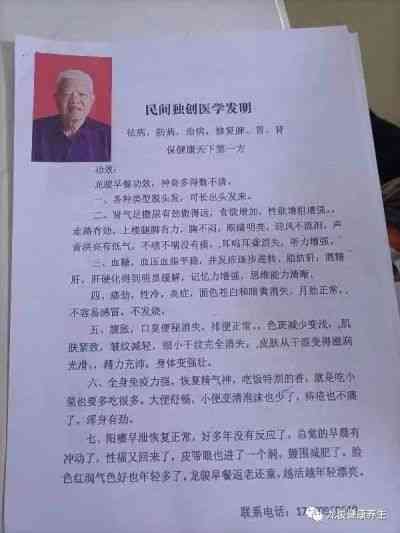 民间独创医学发明
祛病，防病，治病，修复脾、胃、肾
保健康天下第一方
功效：
龙骏早餐功效，神奇多得数不清。
一、各种类型脱头发，可长出头发来。
二、肾气足撒尿有劲撒得远，食欲增加，性欲增粗增强。。
走路有劲，上楼腿脚有力，胸不闷，眼睛明亮，迎风不流泪，声
音洪亮有低气，不咳不喘没有痰，耳鸣耳聋消失，听力增强，
三、血糖，血压血脂平稳，并发症逐步逆转，脂肪肝，酒精
肝，肝硬化得到明显缓解，记忆力增强，思维能力清晰，
四、痛劲，性冷，炎症，面色苍白和暗黄消失，月劲正常，。
不容易感冒，不发烧。
五、腹胀，口臭便秘消失，排便正常。。色斑减少变浅，肌
肤紧致，皱纹减轻，细小干纹完全消失，皮肤从干涩变得滋润
光滑，，精力充沛，身体变强壮。
六、全身免疫力强，恢复精气神，吃饭特别的香，就是吃小
菜也要多吃很多。大便舒畅，小便变清泡沫也少了，痔疮也不痛
了。浑身有劲。
七、阳痿早泄恢复正常，好多年没有反应了，总觉的早晨有
冲动了，性福又回来了，皮带眼也进了一个洞，腹围减肥了。脸
色红润气色好也年轻多了，龙骏早餐返老还童，越活越年轻漂亮。
联系电话：17
龙骏健康养生